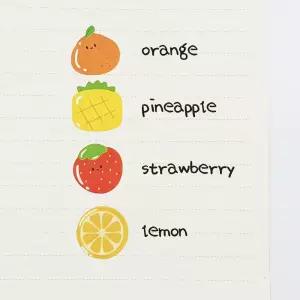 orange
pineapple
strawberry
lemon